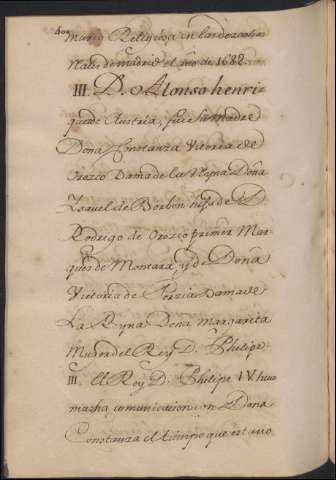 murio Religiosa en las descalzas
Reales de madrid el año de 1682.
III. D. Alonso henri-
quez de Austria, fue su madre
Doña Constanza Vitoria de
Orozco Dama de la Reyna Doña
Ysavel de Borbon hija de D.
Rodrigo de Orozco primer Mar-
ques de Montara, y de Doña
Victoria de Porzia Dama de
La Reyna Dona Margarita
Muger del Rey D. Phelipe
III. El Rey D. Phelipe IV. tuvo
mucha comunicacion con Dona
Constanza el tiempo que estuvo